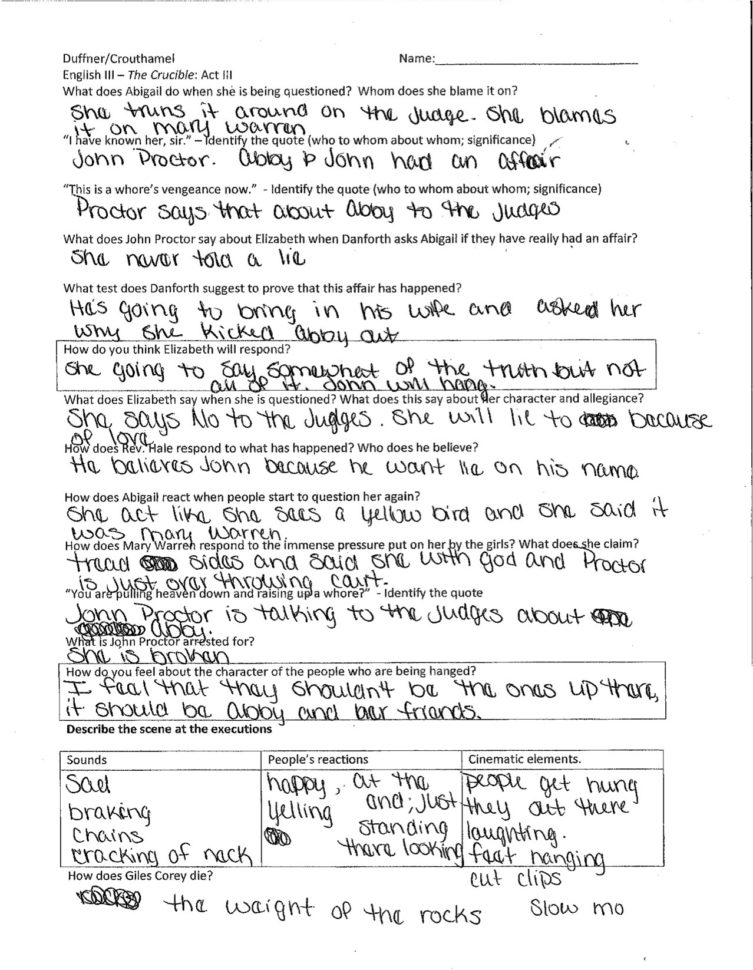 Duffner/Crouthamel Name:
English III – The Crucible: Act III
What does Abigail do when she is being questioned? Whom does she blame it on?
She truns it around on the Judge. She blames
it on mary warren
"I have known her, sir." – Identify the quote (who to whom about whom; significance)
John Proctor. Abby & John had an affair
"This is a whore's vengeance now." - Identify the quote (who to whom about whom; significance)
Proctor says that about Abby to the Judges
What does John Proctor say about Elizabeth when Danforth asks Abigail if they have really had an affair?
She never told a lie
What test does Danforth suggest to prove that this affair has happened?
He's going to bring in his wife and asked her
why she kicked abby out
How do you think Elizabeth will respond?
She going to say somewhat of the truth but not
all of it. John will hang.
What does Elizabeth say when she is questioned? What does this say about her character and allegiance?
She says No to the Judges. She will lie to because
of love
How does Rev. Hale respond to what has happened? Who does he believe?
He believes John because he want lie on his name
How does Abigail react when people start to question her again?
She act like she sees a yellow bird and she said it
was mary warren.
How does Mary Warren respond to the immense pressure put on her by the girls? What does she claim?
tread sides and said she with god and Proctor
is just over throwing cout.
"You are pulling heaven down and raising up a whore?" - Identify the quote
John Proctor is talking to the Judges about
Abby.
What is John Proctor arrested for?
She is broken
How do you feel about the character of the people who are being hanged?
I feel that they shouldn't be the ones up there,
it should be Abby and her friends.
Describe the scene at the executions
Sounds People's reactions Cinematic elements.
Sad happy, at the people get hung
braking yelling and; just they out there
chains standing laughting.
cracking of neck there looking feet hanging
How does Giles Corey die? cut clips
the weight of the rocks slow mo